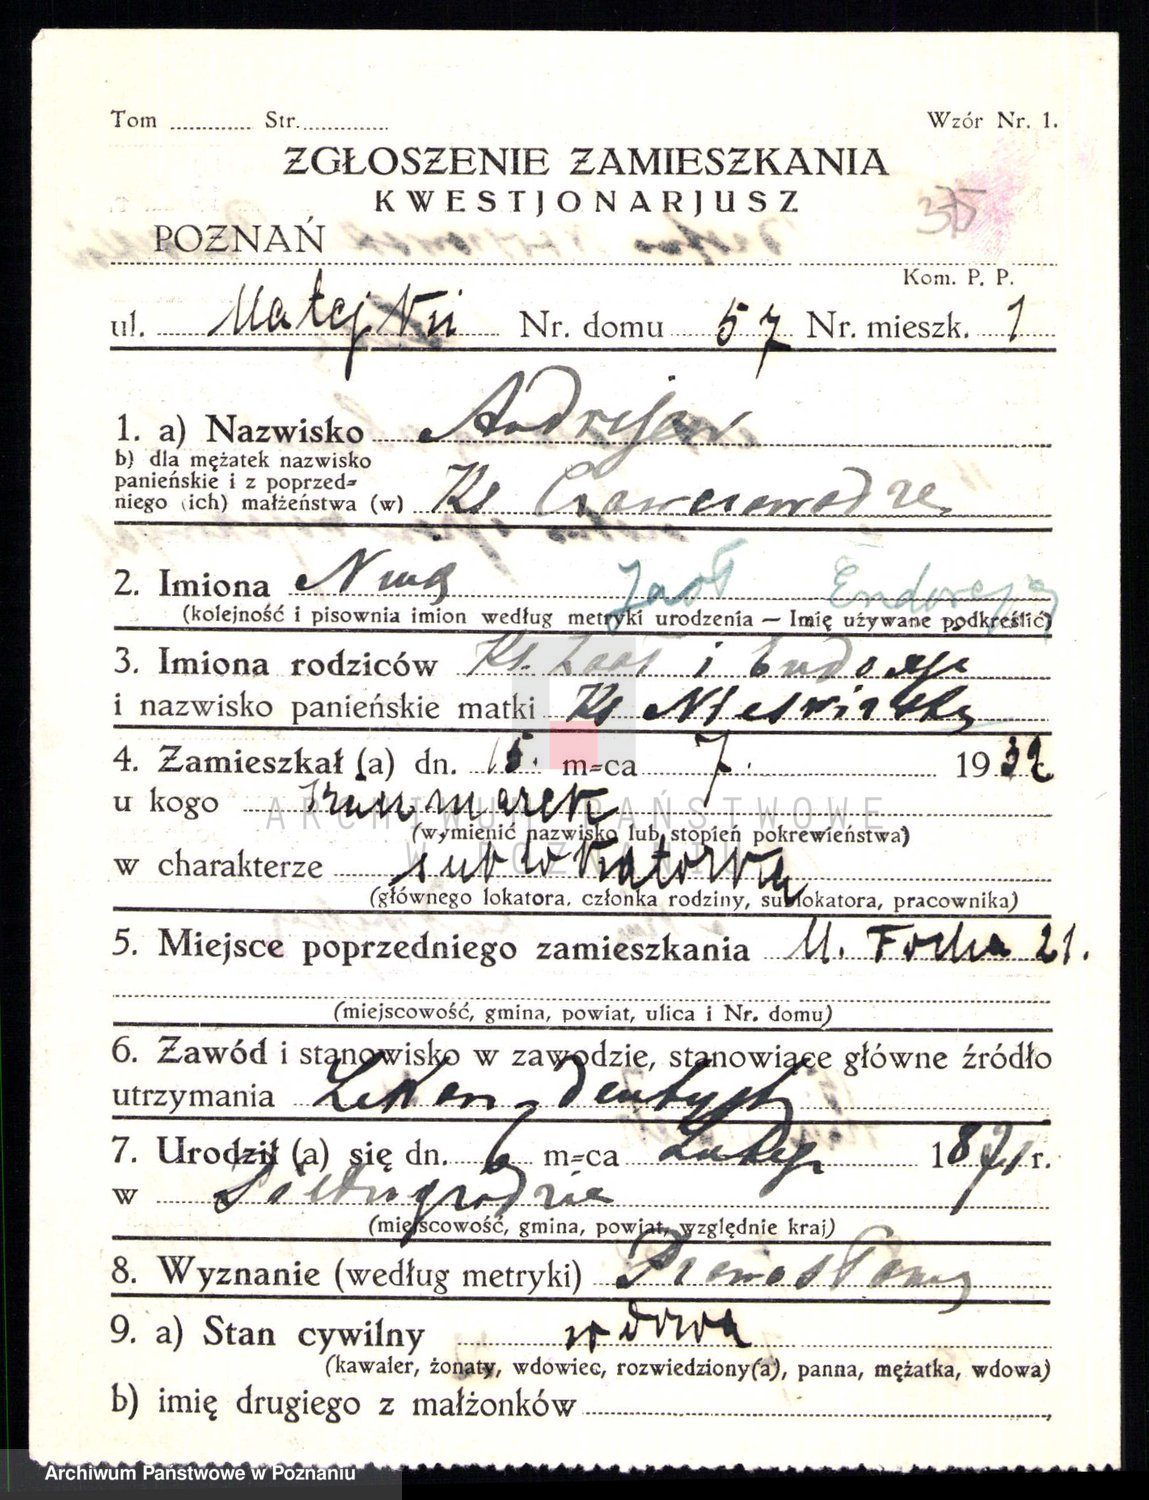 Tom ............ Str. ............ Wzór Nr. 1.
ZGŁOSZENIE ZAMIESZKANIA
KWESTJONARJUSZ
375
POZNAŃ
Kom. P. P.
ul. Matejki Nr. domu 57 Nr. mieszk. 1
1. a) Nazwisko
b) dla mężatek nazwisko
panieńskie i z poprzed-
niego (ich) małżeństwa (w) Ks
2. Imiona Nina
(kolejność i pisownia imion według metryki urodzenia — Imię używane podkreślić)
3. Imiona rodziców Ks. i
i nazwisko panieńskie matki Ks
4. Zamieszkał (a) dn. 15. m-ca 7. 1932
u kogo
ARCHIWUM PAŃSTWOWE
(wymienić nazwisko lub stopień pokrewieństwa)
W POZNANIU
w charakterze sublokatorka
(głównego lokatora, członka rodziny, sublokatora, pracownika)
5. Miejsce poprzedniego zamieszkania M. Focha 21.
(miejscowość, gmina, powiat, ulica i Nr. domu)
6. Zawód i stanowisko w zawodzie, stanowiące główne źródło
utrzymania Lekarz dentysta
7. Urodził (a) się dn. 6 m-ca Lutego 1871 r.
w
(miejscowość, gmina, powiat, względnie kraj)
8. Wyznanie (według metryki) Prawosławny
9. a) Stan cywilny wdowa
(kawaler, żonaty, wdowiec, rozwiedziony(a), panna, mężatka, wdowa)
b) imię drugiego z małżonków
Archiwum Państwowe w Poznaniu